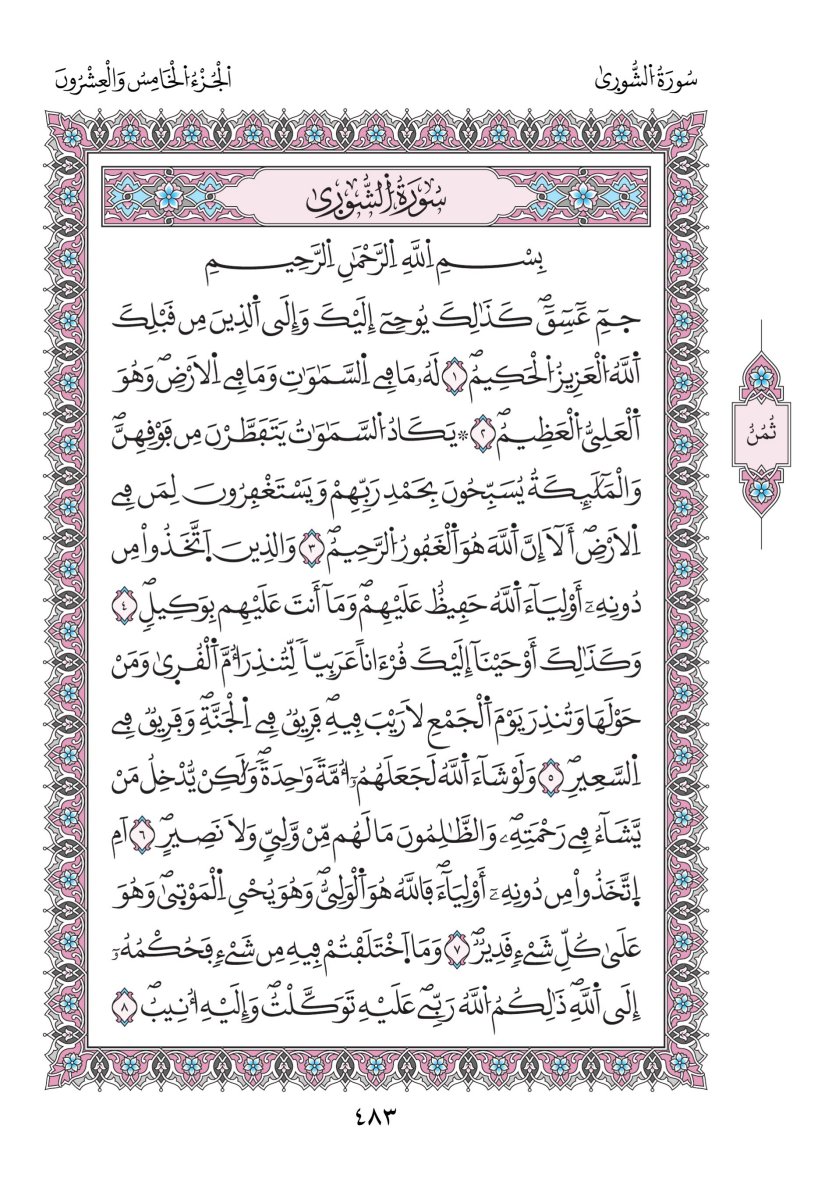 سُورَةُ اُلشُّورۭىٰ
اَلْجُزْءُ اُلْخَامِسُ وَالْعِشْرُونَ
سُورَةُ اُلشُّورۭىٰ
بِسْمِ اِللَّهِ اِلرَّحْمَٰنِ اِلرَّحِيمِ
جٓمِٓ عَٓسِٓقَٓۖ كَذَٰلِكَ يُوحِےٓ إِلَيْكَ وَإِلَى اَلذِينَ مِن قَبْلِكَ
اَللَّهُ اُلْعَزِيزُ اُلْحَكِيمُۖ ١ لَهُۥ مَا فِے اِلسَّمَٰوَٰتِ وَمَا فِے اِلَارْضِۖ وَهُوَ
اَلْعَلِيُّ اُلْعَظِيمُۖ ٢ * يَكَادُ اُلسَّمَٰوَٰتُ يَتَفَطَّرْنَ مِن فَوْقِهِنَّۖ
وَالْمَلَٰٓئِكَةُ يُسَبِّحُونَ بِحَمْدِ رَبِّهِمْ وَيَسْتَغْفِرُونَ لِمَن فِے
اِلَارْضِۖ أَلَآ إِنَّ اَللَّهَ هُوَ اَلْغَفُورُ اُلرَّحِيمُۖ ٣ وَالذِينَ اَتَّخَذُواْ مِن
دُونِهِۦٓ أَوْلِيَآءَ اَللَّهُ حَفِيظٌ عَلَيْهِمْۖ وَمَآ أَنتَ عَلَيْهِم بِوَكِيلٖۖ ٤
وَكَذَٰلِكَ أَوْحَيْنَآ إِلَيْكَ قُرْءَاناً عَرَبِيّاٗ لِّتُنذِرَ أُمَّ اَلْقُر۪ىٰ وَمَنْ
حَوْلَهَا وَتُنذِرَ يَوْمَ اَلْجَمْعِ لَا رَيْبَ فِيهِۖ فَرِيقٞ فِے اِلْجَنَّةِۖ وَفَرِيقٞ فِے
اِلسَّعِيرِۖ ٥ وَلَوْ شَآءَ اَللَّهُ لَجَعَلَهُمُۥٓ أُمَّةٗ وَٰحِدَةٗۖ وَلَٰكِنْ يُّدْخِلُ مَنْ
يَّشَآءُ فِے رَحْمَتِهِۦۖ وَالظَّٰلِمُونَ مَا لَهُم مِّنْ وَّلِيّٖ وَلَا نَصِيرٍۖ ٦ اَمِ
اِتَّخَذُواْ مِن دُونِهِۦٓ أَوْلِيَآءَۖ فَاللَّهُ هُوَ اَلْوَلِيُّۖ وَهُوَ يُحْيِ اِلْمَوْتَىٰۖ وَهُوَ
عَلَىٰ كُلِّ شَےْءٖ قَدِيرٞۖ ٧ وَمَا اَخْتَلَفْتُمْ فِيهِ مِن شَےْءٖ فَحُكْمُهُۥٓ
إِلَى اَللَّهِۖ ذَٰلِكُمُ اُللَّهُ رَبِّے عَلَيْهِ تَوَكَّلْتُۖ وَإِلَيْهِ أُنِيبُۖ ٨
ثُمُن
٤٨٣